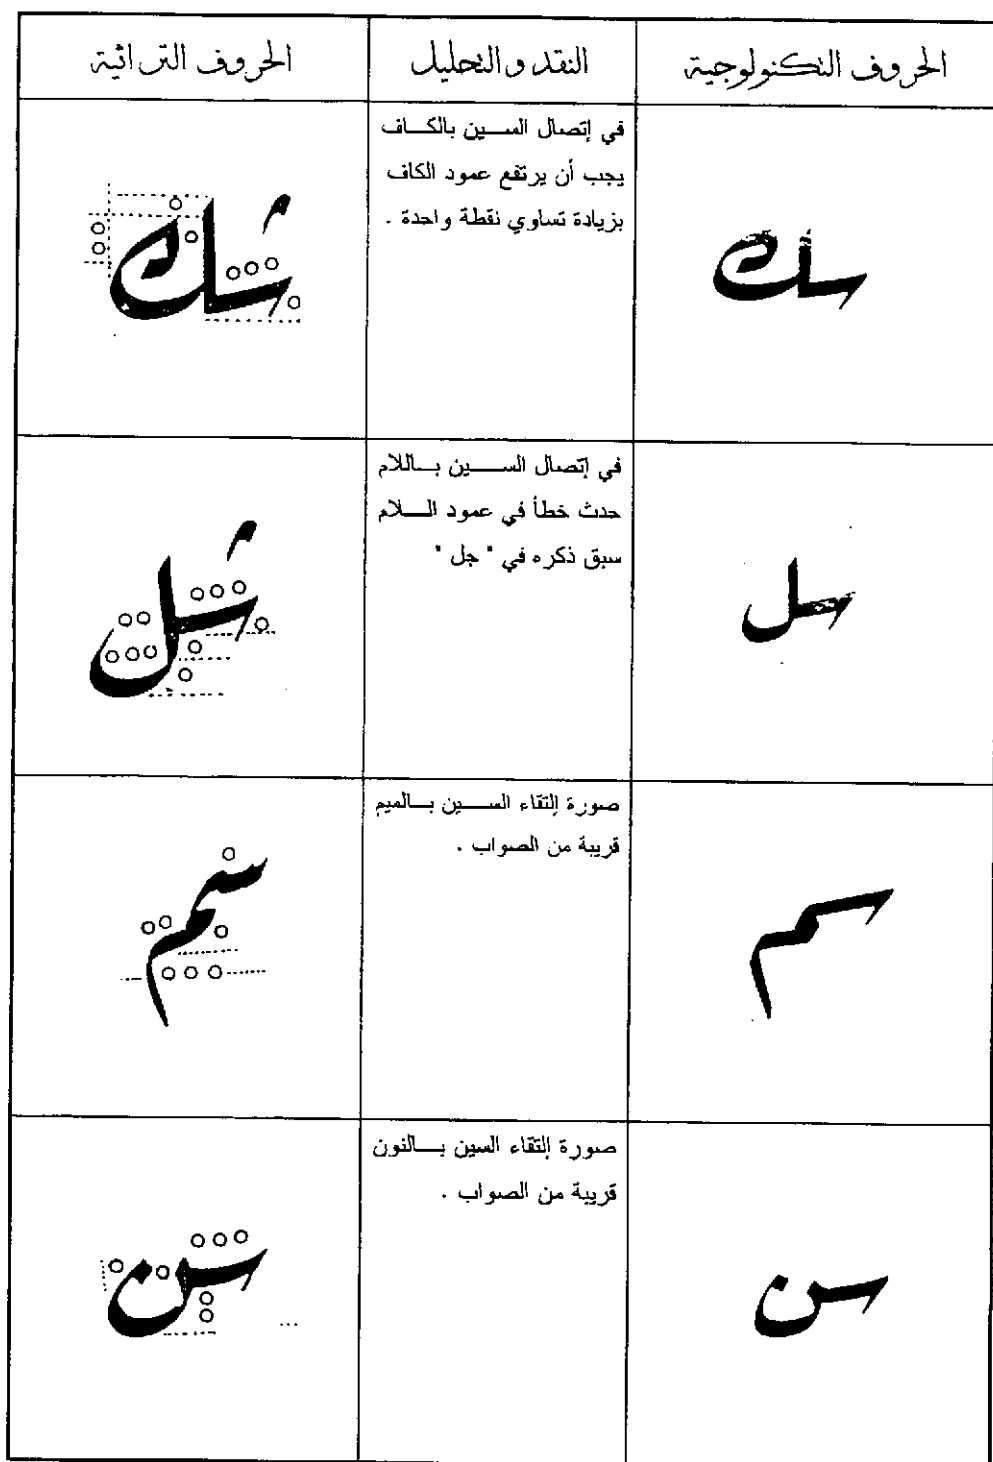 الحروف التكنولوجية
النقد والتحليل
الحروف التراثية
سك
في إتصال السين بالكاف
يجب أن يرتفع عمود الكاف
بزيادة تساوي نقطة واحدة .
سك
سل
في إتصال السين باللام
حدث خطأ في عمود اللام
سبق ذكره في " جل "
سل
سم
صورة إلتقاء السين بالميم
قريبة من الصواب .
سم
سن
صورة إلتقاء السين بالنون
قريبة من الصواب .
سن